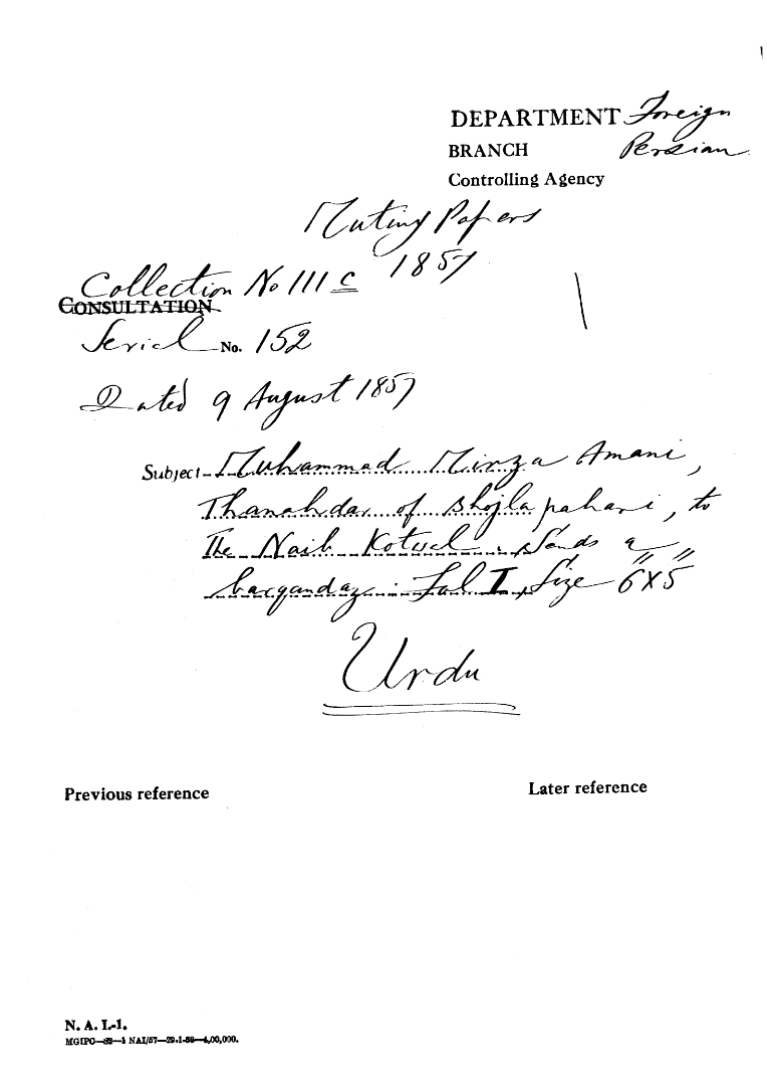 DEPARTMENT Foreign
BRANCH Persian
Controlling Agency
Mutiny Papers
1857
Collection No 111 c
CONSULTATION
Serial No. 152
Dated 9 August 1857
Subject - Muhammad Mirza Amani,
Thanahdar of Bhojla pahari, to
The Naib Kotwal. Sends a
barqandaz. Fol I, Size 6"X5"
Urdu
Previous reference
Later reference
N. A. I.-1.
MGIPC—82—1 NAI/57—29-1-59—4,00,000.